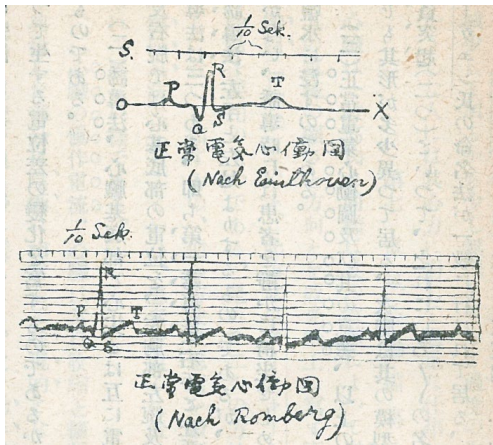 1/10 Sek.
S.
P R T
O Q S X
正常電気心働図
(Nach Einthoven)
1/10 Sek.
R
P T
Q S
正常電気心働図
(Nach Romberg)